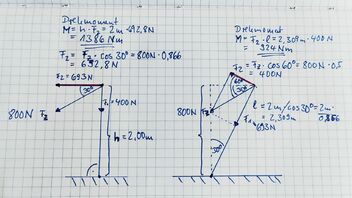 Drehmoment
M = h · F₂ = 2m · 692,8N
= 1386 Nm
F₂ = F₂ · cos 30° = 800N · 0,866
= 692,8N
F₂ = 693N
30°
800N
F₂
= 400N
h = 2,00m
Drehmoment
M = F₂ · l = 2,309m · 400N
= 924Nm
F₂ = F₂ · cos 60° = 800N · 0,5
= 400N
60°
30°
800N
F₂
F₁ =
693N
l = 2m/cos 30° = 2m
0,866
= 2,309m
30°